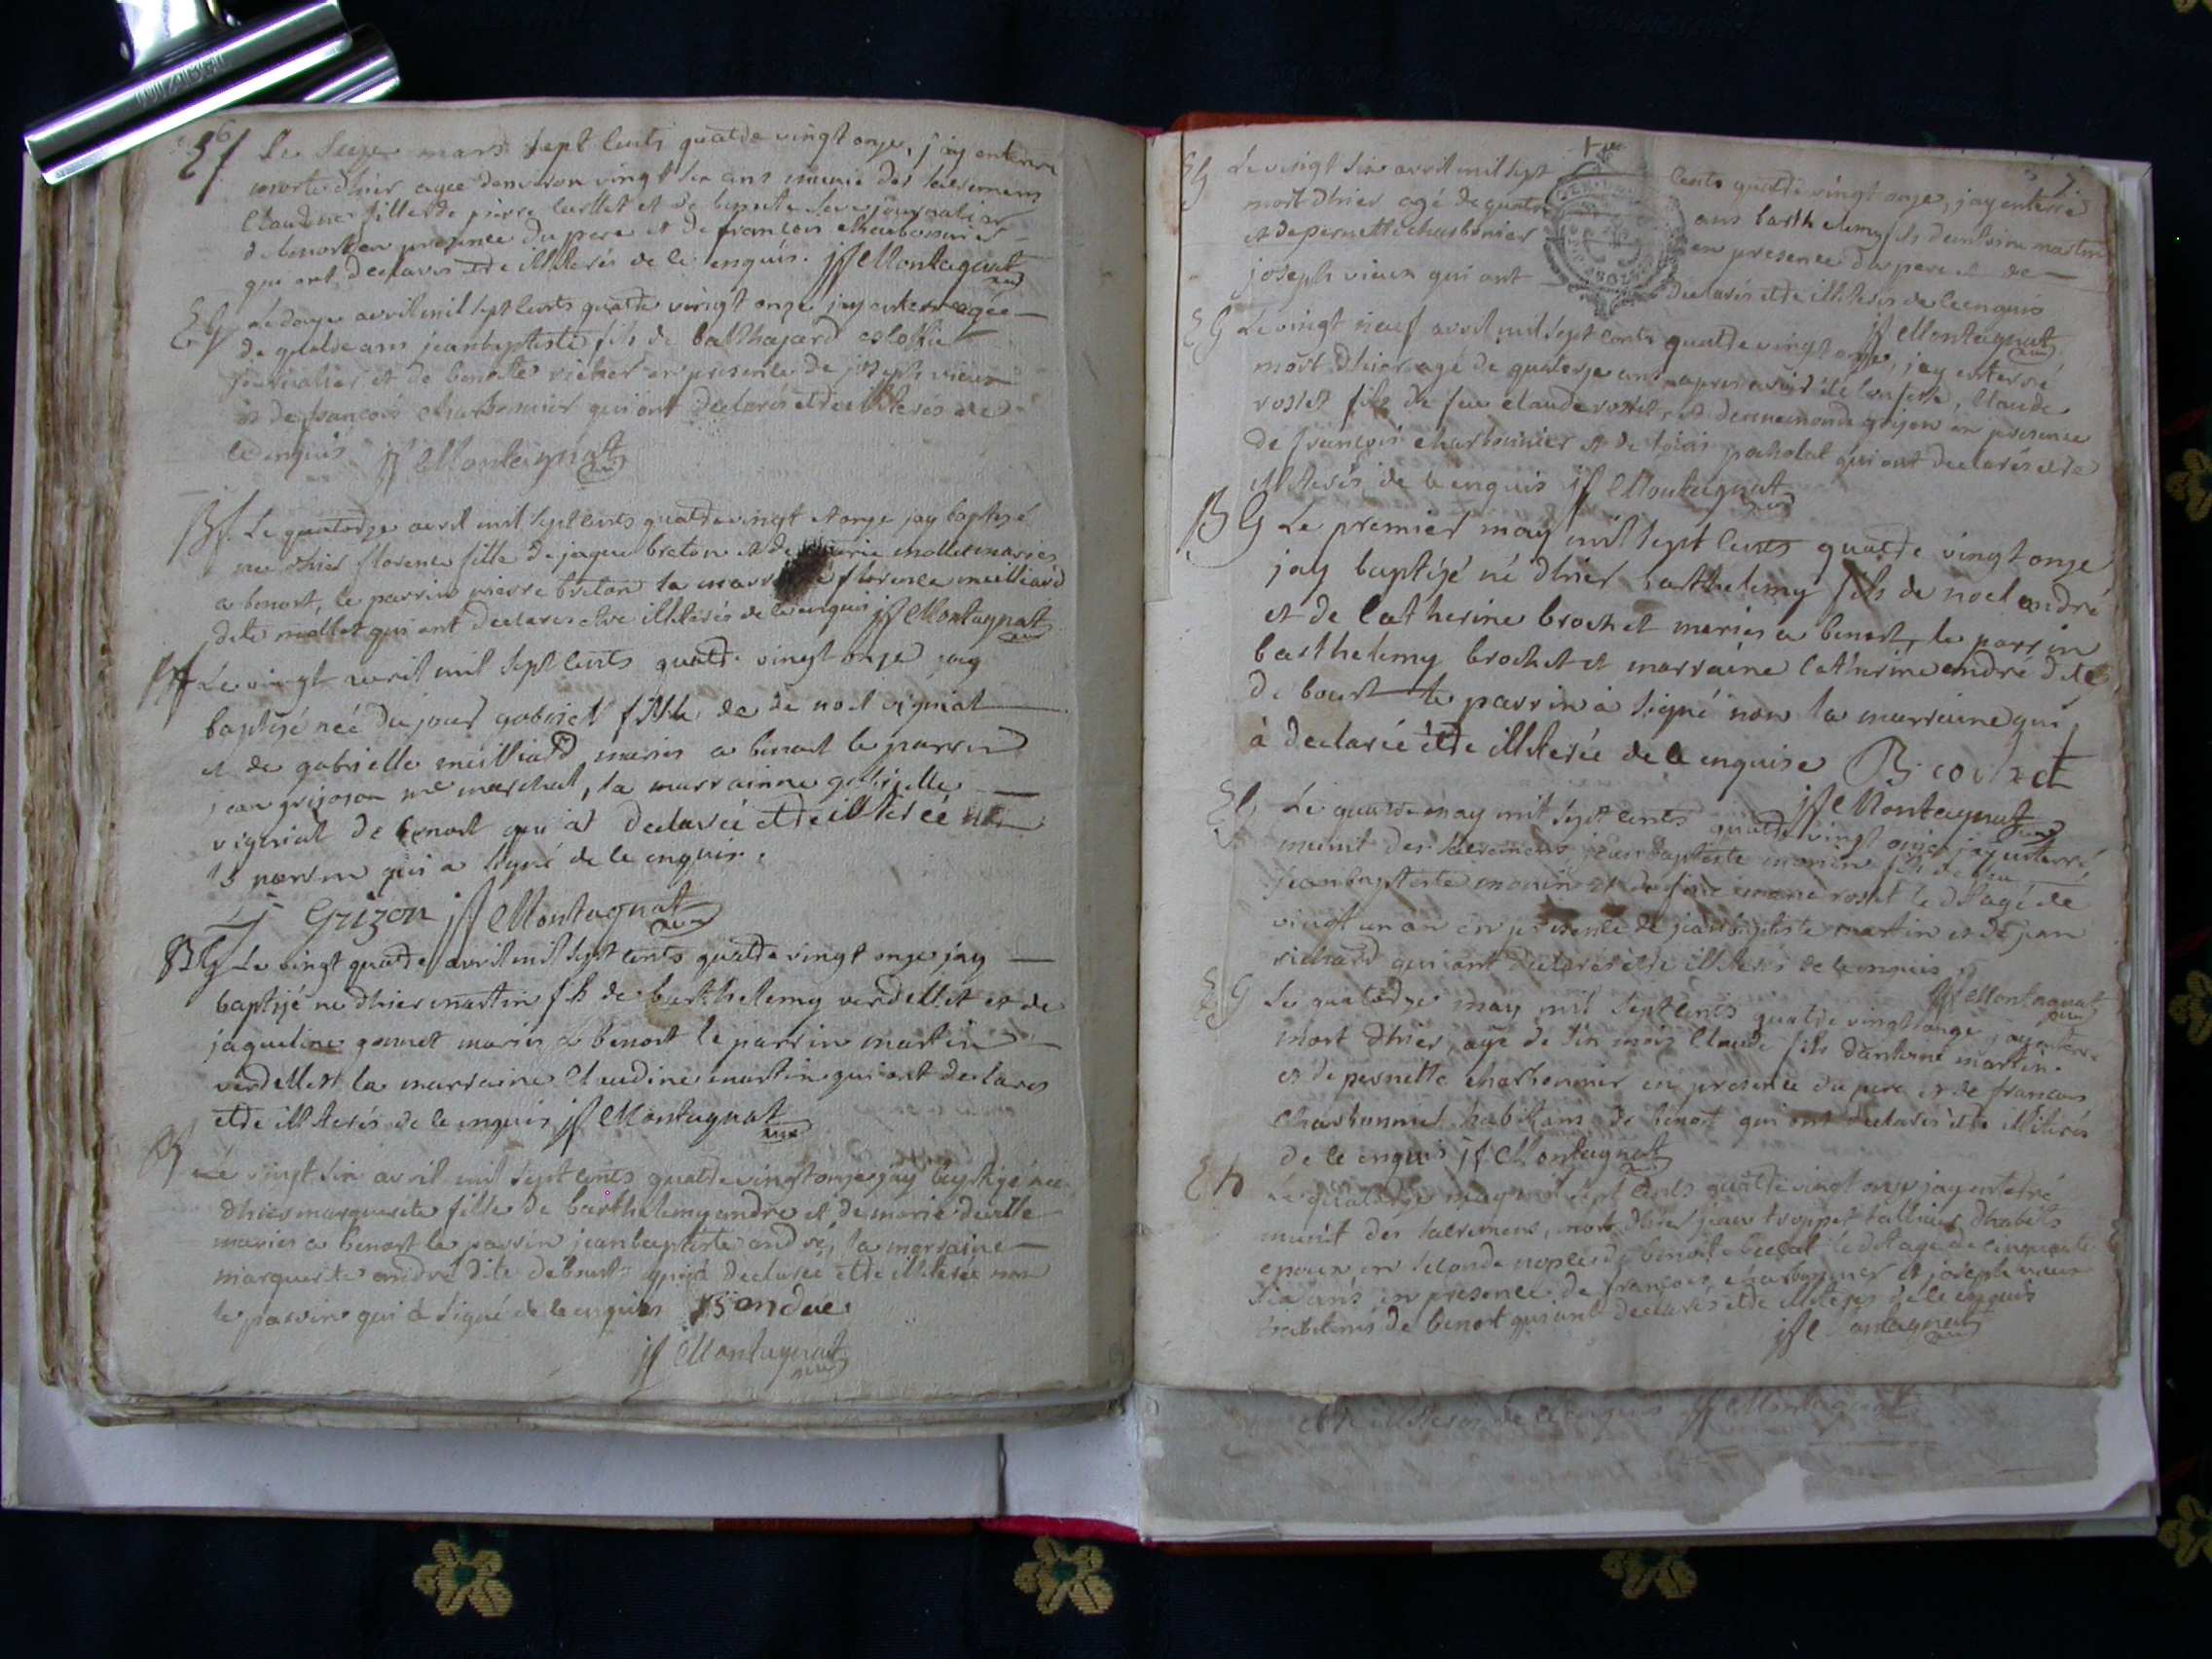 6
Ef Le Seize mars sept cents quatde vingt onze, j'ay enterré
morte d'hier agée denviron vingt six ans munie des sacremens
Claudine fille de pierre
de benost en presence du pere et de francois charbonnier
qui ont declarés etde illiterés de ce enquis. jf Montagnat curé
EG Le douze avril mil sept cents quatde vingt onze jay enterré agée
de quatde ans jeanbaptiste fils de balthazard
journalier et de benoite richer en presence de joseph vieux
et de francois charbonnier qui ont declarés etde illiterés de
ce enquis jf Montagnat curé
Bf. Le quatodze avril mil sept cents quatdevingt et onze jay baptizé
née d'hier florence fille de jaque breton et de marie mollet mariés
a benost, le parrin pierre breton la marraine florence meilliard
dite mollet qui ont declarés etde illiterés de ce enquis jf Montagnat curé
Bf Le vingt avril mil sept cents quatde vingt onze jay
baptisé née du jour gabriel fille de de noel vigniat
et de gabrielle meilliard mariés a benost le parrin
jean grizon me marchal, la marrainne gabrielle
vigniat de benost qui a declarée etde illiterée non
le parrin qui a signé de ce enquis.
J Grizon jf Montagnat curé
BG Le vingt quatde avril mil sept cents quatde vingt onze jay
baptizé né dhier martin fils de barthelemy verdellet et de
jaqueline gonnet mariés a benost le parrin martin
verdellet la marraine Claudine martin qui ont declarés
etde illiterés de ce enquis jf Montagnat curé
Bf Le vingt six avril mil sept cents quatdevingt onze jay baptizé née
dhier marguerite fille de barthelemy andré et de marie deville
mariés a benost le parrin jeanbaptiste andré, la marraine
marguerite andré dite debourt qui a declarée etde illiterée non
le parrin qui a signé de ce enquis
jf Montagnat curé
7.
EG Le vingt six avril mil sept cents quatde vingt onze, jay enterré
mort dhier agé de quatre ans barthelemy fils dantoine martin
et de pernette charbonier en presence du pere et de
joseph vieux qui ont declarés etde illiterés de ce enquis
jf Montagnat curé
EG Le vingt neuf avril mil sept cents quatde vingt onze, jay enterré
mort dhier agé de quatorze ans apres avoir été confessé, Claude
rosset fils de feu claude rosset, et dennemonde grizon en presence
de francois charbonnier et de louis pochalat qui ont declarés etde
illiterés de ce enquis jf Montagnat curé
BG Le premier may mil sept cents quatde vingt onze
jay baptizé né dhier barthelemy fils de noel andré
et de Catherine brochet mariés a benost, le parrin
barthelemy brochet et marraine Catherine andré dite
de bourt le parrin a signé non la marraine qui
à declarée etde illiterée de ce enquise B. cochet
jf Montagnat curé
EG Le quatde may mil sept cents quatde vingt onze jay enterré,
munit des sacremens jeanbaptiste monin fils de feu
jeanbaptiste monin et de rosset le dit agé de
vingt un an en presence de jeanbaptiste martin et de jean
richard qui ont declarés etde illiterés de ce enquis
jf Montagnat curé
EG Le quatodze may mil sept cents quatde vingt onze jay enterré
mort dhier, agé de six mois Claude fils dantoine martin
et de pernette charbonnier en presence du pere et de francois
charbonnier habitans de benost qui ont declarés etde illiterés
de ce enquis jf Montagnat curé
Eh Le quatodze may mil sept cents quatde vingt onze jay enterré
munit des sacremens, mort dhier jean troppet tallieur dhabits
epoux en seconde nopce de benoite le dit agé de cinquante
six ans en presence de francois charbonnier et joseph vieux
habitans de benost qui ont declarés etde illiterés de ce enquis
jf Montagnat curé
etde illiterés de ce enquis jf Montagnat